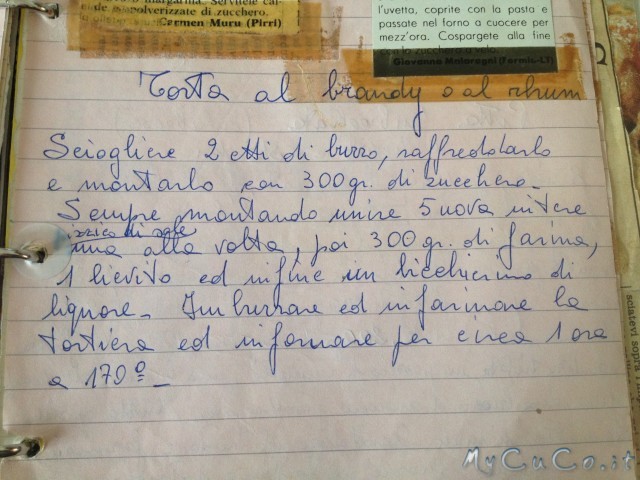 margarina. Servitele cal-
de spolverizzate di zucchero.
Carmen Muru (Pirri)
l'uvetta, coprite con la pasta e
passate nel forno a cuocere per
mezz'ora. Cospargete alla fine
con lo zucchero a velo.
Giovanna Malaragni (Formia-LT)
Torta al brandy o al rhum
Sciogliere 2 etti di burro, raffreddarlo
e montarlo con 300 gr. di zucchero.
Sempre montando unire 5 uova intere
di sale
una alla volta, poi 300 gr. di farina,
1 lievito ed infine un bicchierino di
liquore. Imburrare ed infarinare la
tortiera ed infornare per circa 1 ora
a 170º.
MyCuCo.it